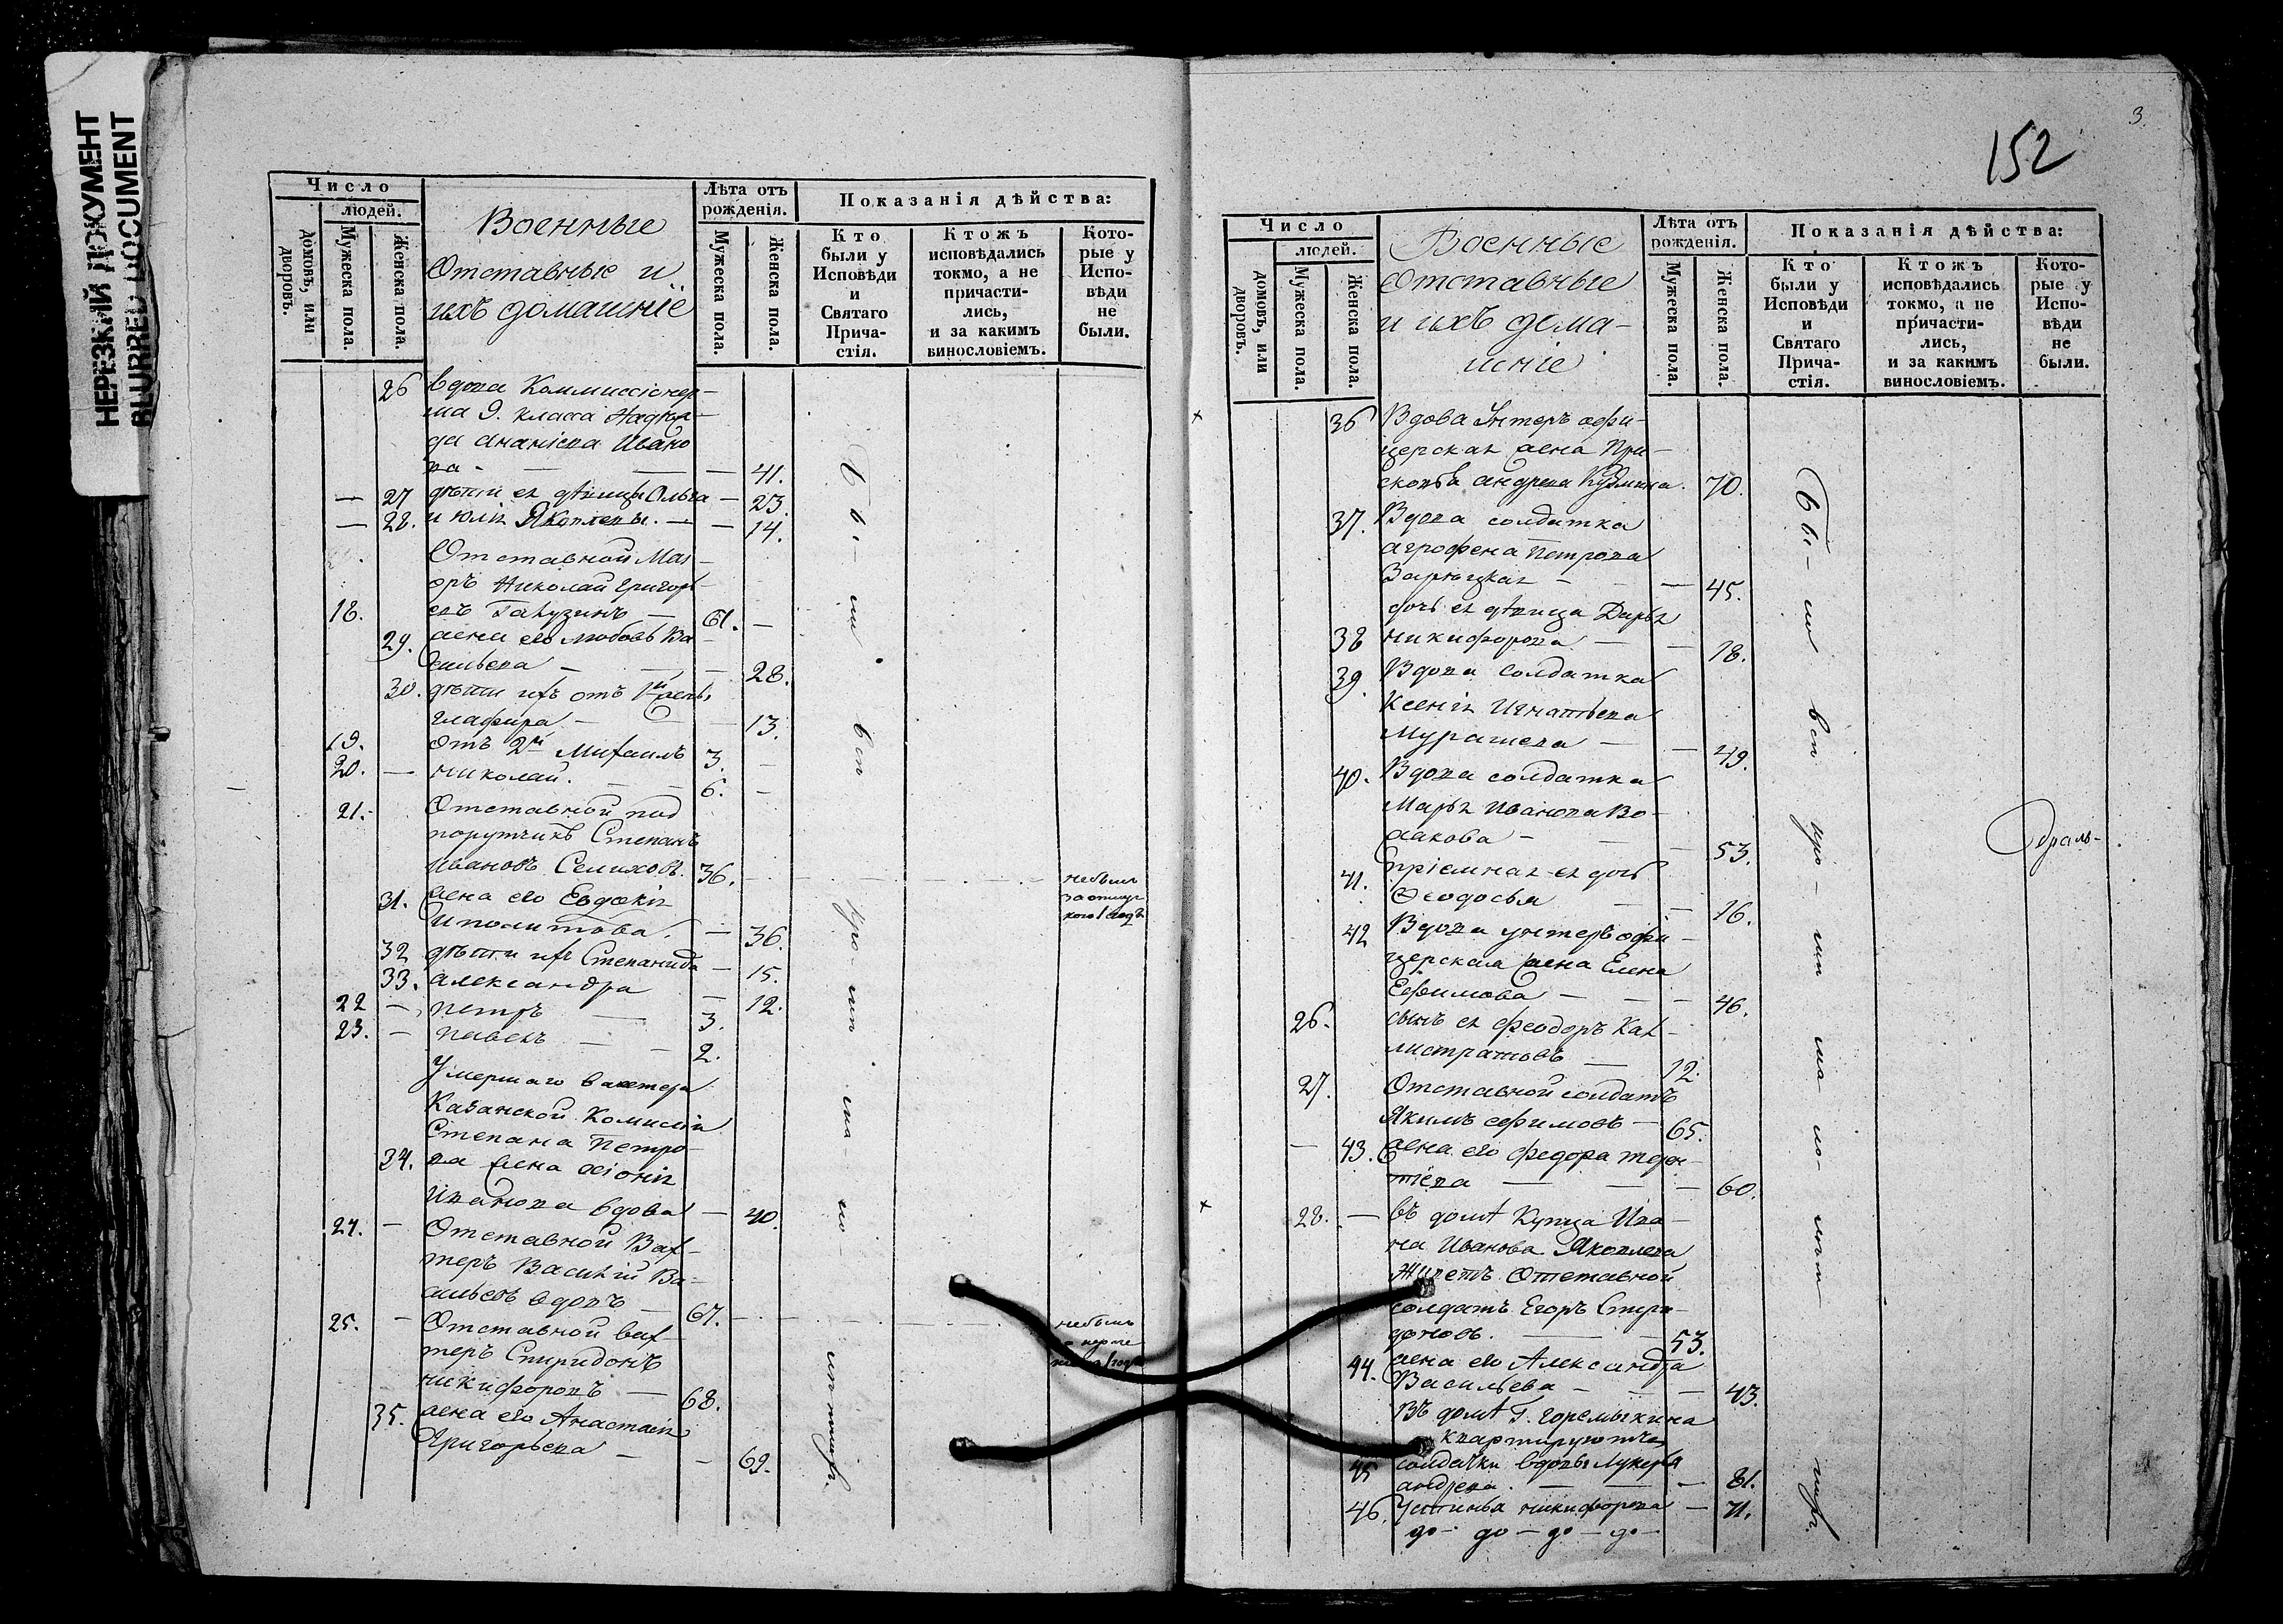 НЕРЕЗКИЙ ДОКУМЕНТ
BLURRED DOCUMENT
Число
людей.
домовъ, или дворовъ.
Мужеска пола.
Женска пола.
Военные
Отставные и
ихъ домашніе
Лѣта отъ рожденія.
Мужеска пола.
Женска пола.
Показанія дѣйства:
Кто были у Исповѣди и Святаго Прича-стія.
Ктожъ исповѣдались токмо, а не причасти-лись, и за какимъ винословіемъ.
Кото-рые у Испо-вѣди не были.
26 вдова Коммиссіонер-
ша 9. класса
Ананіева Ивано
ва - 41.
27 дѣти ея дѣвицы Ольга 23.
28. и Юлія Яковлевы. 14.
Отставной Маі-
оръ Николай Григорь-
18. евъ 61.
29. жена его Любовь Ва-
сильева 28.
30. дѣти ихъ отъ 1й жены
Глафира 13.
19. отъ 2й Михаилъ 3.
20. Николай. 6.
21. Отставной под
порутчикъ Степанъ
Ивановъ Селиховъ. 36. небылъ
31. жена его Евдокія
Иполитова. 36.
32 дѣти ихъ Степанида 15.
33. Александра 12.
22 Петръ 3.
23. Павелъ 2.
Умершаго вахтера
Казанской Комисіи
Степана Петро-
34. ва жена Хіонія
Иванова вдова 40.
24. Отставной Вах-
теръ Василій Ва-
сильевъ вдовъ 67. небылъ
25. Отставной вах-
теръ Спиридонъ
Никифоровъ 68.
35. жена его Анастасія
Григорьева 69.
Бы-ли вси при-ни-ма-ю- щихъ
3.
152
Число
людей.
домовъ, или дворовъ.
Мужеска пола.
Женска пола.
Военные
Отставные
и ихъ дома-
шніе
Лѣта отъ рожденія.
Мужеска пола.
Женска пола.
Показанія дѣйства:
Кто были у Исповѣди и Святаго Прича-стія.
Ктожъ исповѣдались токмо, а не причасти-лись, и за какимъ винословіемъ.
Кото-рые у Испо-вѣди не были.
36 Вдова Унтеръ офи-
церская жена Пра-
сковья Андреева 70.
37. Вдова солдатка
Агрофена Петрова
45.
дочь ея дѣвица Дарья
38 Никифорова 18.
39. Вдова солдатка
Ксенія Игнатьева
Мурашева 49.
40. Вдова солдатка
Марья Иванова Во-
лакова 53.
41. пріемная ея дочь
Ѳеодосья 16.
42 Вдова унтеръ офи-
церская жена Елена
Ефимова 46.
26. сынъ ея Феодоръ Кал-
листратовъ 12.
27. Отставной солдатъ
Якимъ Ефимовъ 65.
43. жена его Федора Терен-
тіева 60.
28. въ домѣ Купца Ива-
на Иванова Яковлева
живетъ Отставной
солдатъ Егоръ Спири-
доновъ. 53.
44. жена его Александра
Васильева 43.
Въ домѣ Г. Горемыкина
квартируютъ
45 солдатки вдовы Лукерья
Андреева. 81.
46. Устинья Никифорова 71.
до - до - до - до -